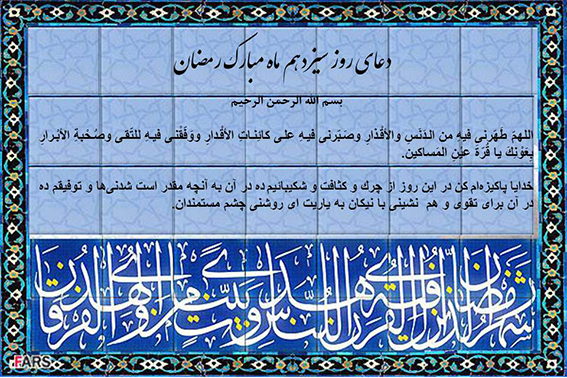 دعای روز سیزدهم ماه مبارک رمضان
بسم الله الرحمن الرحیم
اللهمّ طَهّرنی فیهِ من الدَنَسِ والأقْذار وصَبّرنی فیهِ علی کائِناتِ الأقْدارِ ووَفّقْنی فیه للتّقی وصُحْبةِ الأبْرارِ
بِعَوْنِکَ یا قُرّةَ عیْنِ المَساکین.
خدایا پاکیزه‌ام کن در این روز از چرک و کثافت و شکیبائیم ده در آن به آنچه مقدر است شدنی‌ها و توفیقم ده
در آن برای تقوی و هم نشینی با نیکان به یاریت ای روشنی چشم مستمندان.
شهر رمضان الذی انزل فیه القرآن هدی للناس وبینات من الهدی والفرقان
FARS